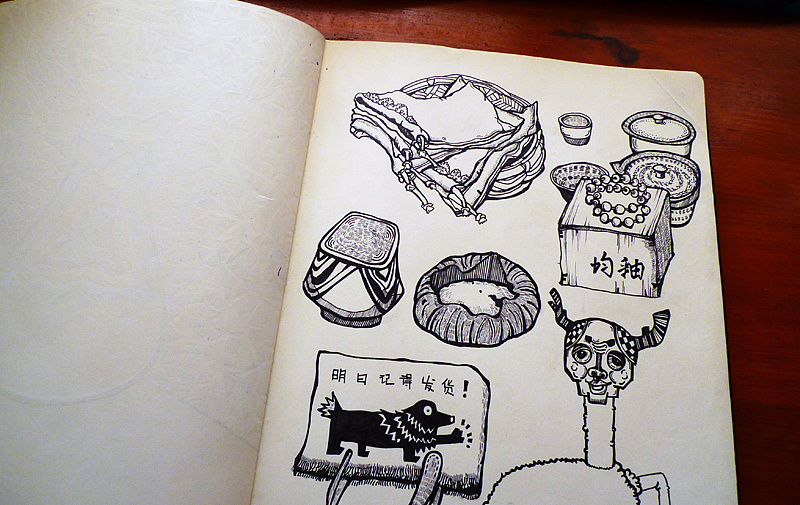 均釉
明日记得发货！